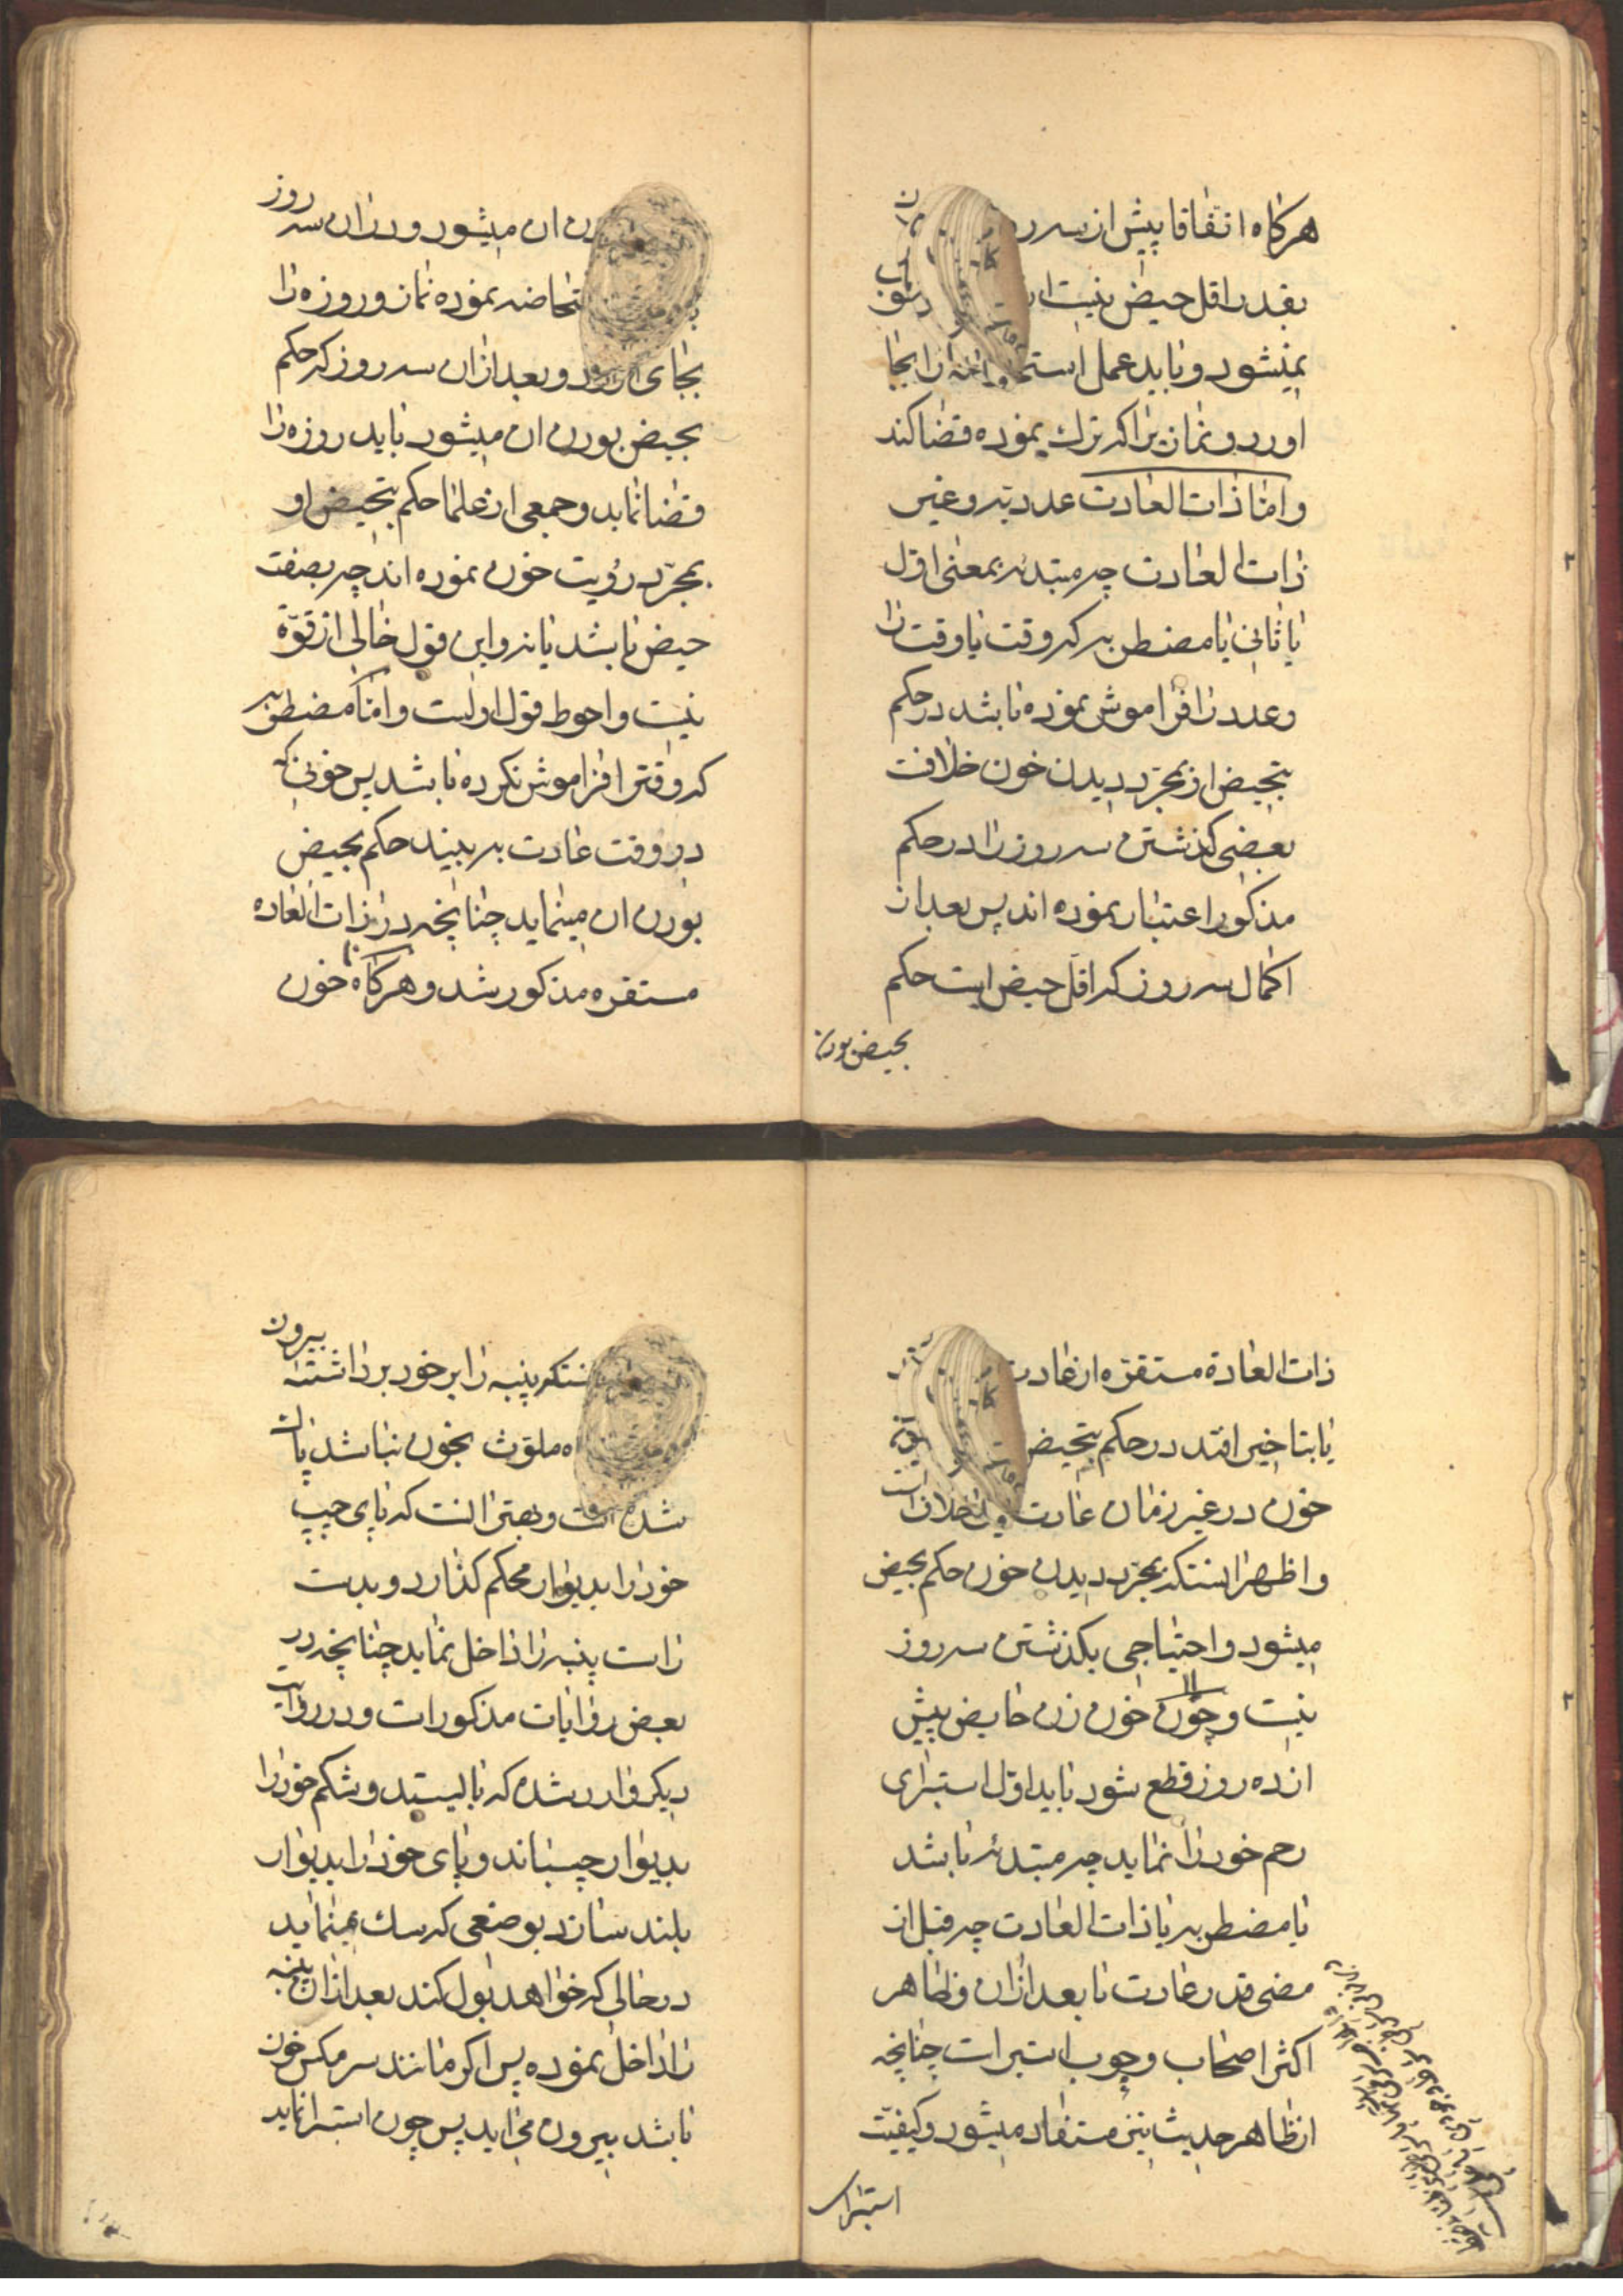 هرکاه اتفاقا پیش از سه روز
بقدر اقل حیض نیست
نمیشود و باید عمل استحاضه را بجا
اورد و نمازیرا که ترك نموده قضا کند
و اما ذات العادت عددیه و غیر
ذات العادت چه مبتدئه بمعنی اول
یا ثانی یا مضطربه که وقت یا وقت را
و عدد را فراموش نموده باشد در حکم
بتحیض از بمجرد دیدن خون خلافت
بعضی کذشتن سه روز را در حکم
مذکور اعتبار نموده اند پس بعد از
اکمال سه روز که اقل حیض است حکم
بحیض بودن
ان میشود و در ان سه روز
استحاضه نموده نماز و روزه را
بجای اورد و بعد از ان سه روز که حکم
بحیض بودن ان میشود باید روزه را
قضا نماید و جمعی از علما حکم بتحیض او
بمجرد رؤیت خون نموده اند چه بصفت
حیض باشد یا نه و این قول خالی از قوة
نیست و احوط قول اولست و اما مضطربه
که وقترا فراموش نکرده باشد پس خونی که
در وقت عادت به بیند حکم بحیض
بودن ان مینماید چنانچه در ذات العاده
مستقره مذکور شد و هرکاه خون
ذات العادة مستقره از عادت
یا بتاخیر افتد در حکم بتحیض
خون در غیر زمان عادت خلافست
و اظهر انستکه بمجرد دیدن خون حکم بحیض
میشود و احتیاجی بکذشتن سه روز
نیست و چون خون زن حایض پیش
از ده روز قطع شود باید اول استبرای
رحم خود را نماید چه مبتدئه باشد
یا مضطربه یا ذات العادت چه قبل از
مضی قدر عادت یا بعد از ان و ظاهر
اکثر اصحاب وجوب استبرات چنانچه
از ظاهر حدیث نیز مستفاد میشود و کیفیت
استبراء
انستکه پنبه را بر خود برداشته بیرون
ملوث بخون نباشد پاك
شده است و بهتر انست که پای چپ
خود را بدیوار محکم کذارد و بدست
راست پنبه را داخل نماید چنانچه در
بعض روایات مذکورات و در روایت
دیکر وارد شده که بایستد و شکم خود را
بدیوار چسباند و پای خود را بدیوار
بلند سازد بوضعی که سك مینماید
در حالی که خواهد بول کند بعد از ان پنبه
را داخل نموده پس اکر مانند سر مکس خون
باشد بیرون میاید پس چون استبرا نماید